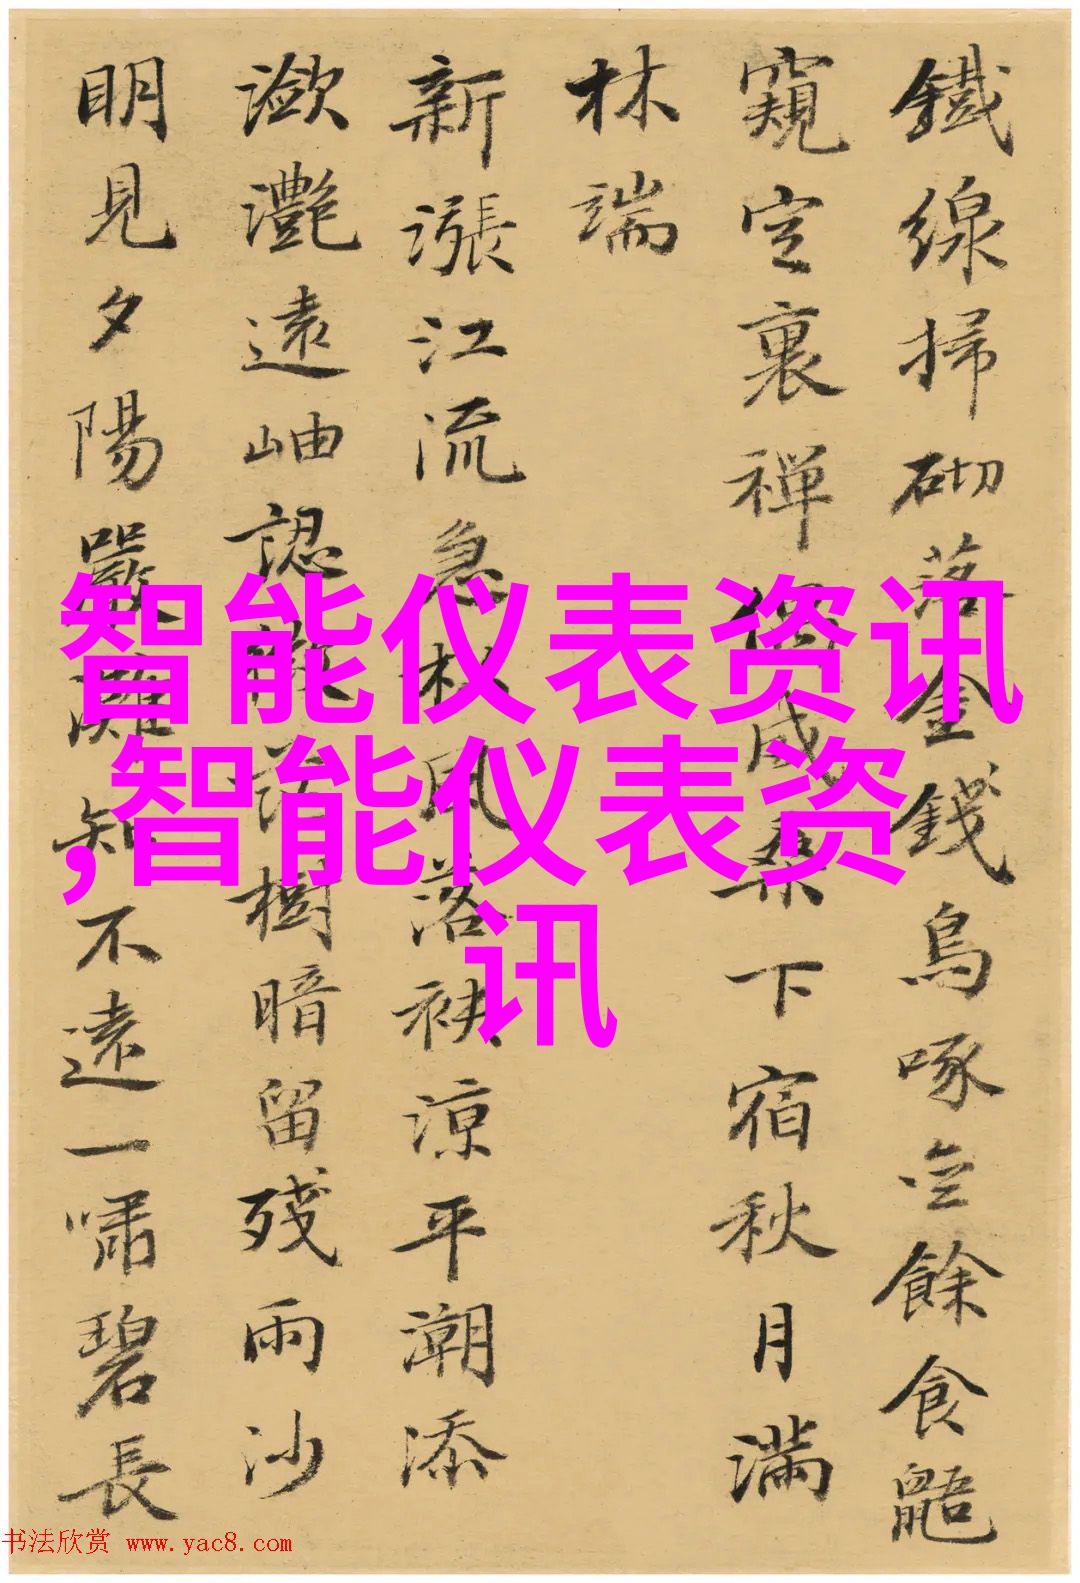 鐵線掃砌落金錢烏啄餘食鼯
窺定裏禪成桑下宿秋月滿
林端
新漲江流急秋風落袂涼平潮添
瀲灩遠岫認樹暗留殘雨沙
明見夕陽嚴灘知不遠一嘯碧長
智能仪表资讯
,智能仪表资
讯
书法欣赏 www.yac8.com